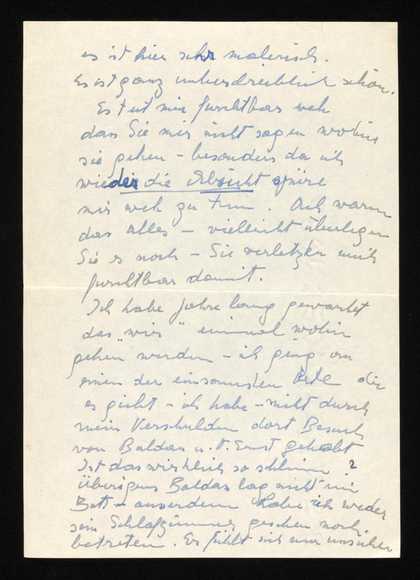 es ist hier sehr malerisch.
Es ist ganz unbeschreiblich schön.
Es tut mir furchtbar weh
dass Sie mir nicht sagen wohin
sie gehen – besonders da ich
wieder die Absicht spüre
mir weh zu tun. Ach warum
das alles – vielleicht überlegen
Sie es noch – Sie verletzen mich
furchtbar damit.
Ich habe Jahre lang gewartet
das "wir" einmal wohin
gehen werden – ich ging an
einen der einsamsten Orte die
es giebt – ich habe – nicht durch
mein Verschulden dort Besuch
von Baldas u. Ernst gehabt
Ist das wirklich so schlimm?
Übrigens Baldas lag nicht im
Bett – ausserdem habe ich weder
sein Schlafzimmer gesehen noch
betreten. Es fühlt sich nur unsicher